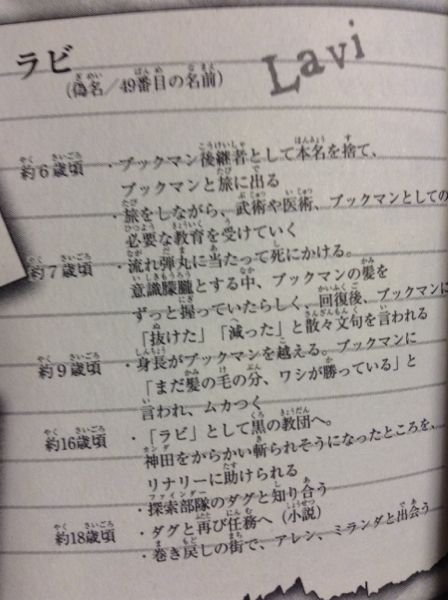 ラビ
(偽名／49番目の名前)
Lavi
約6歳頃 ・ブックマン後継者として本名を捨て、
ブックマンと旅に出る
・旅をしながら、武術や医術、ブックマンとしての
必要な教育を受けていく
約7歳頃 ・流れ弾丸に当たって死にかける。
意識朦朧とする中、ブックマンの髪を
ずっと握っていたらしく、回復後、ブックマンに
「抜けた」「減った」と散々文句を言われる
約9歳頃 ・身長がブックマンを越える。ブックマンに
「まだ髪の毛の分、ワシが勝っている」と
言われ、ムカつく
約16歳頃 ・「ラビ」として黒の教団へ。
神田をからかい斬られそうになったところを、
リナリーに助けられる
・探索部隊のダグと知り合う
約18歳頃 ・ダグと再び任務へ（小説）
・巻き戻しの街で、アレン、ミランダと出会う